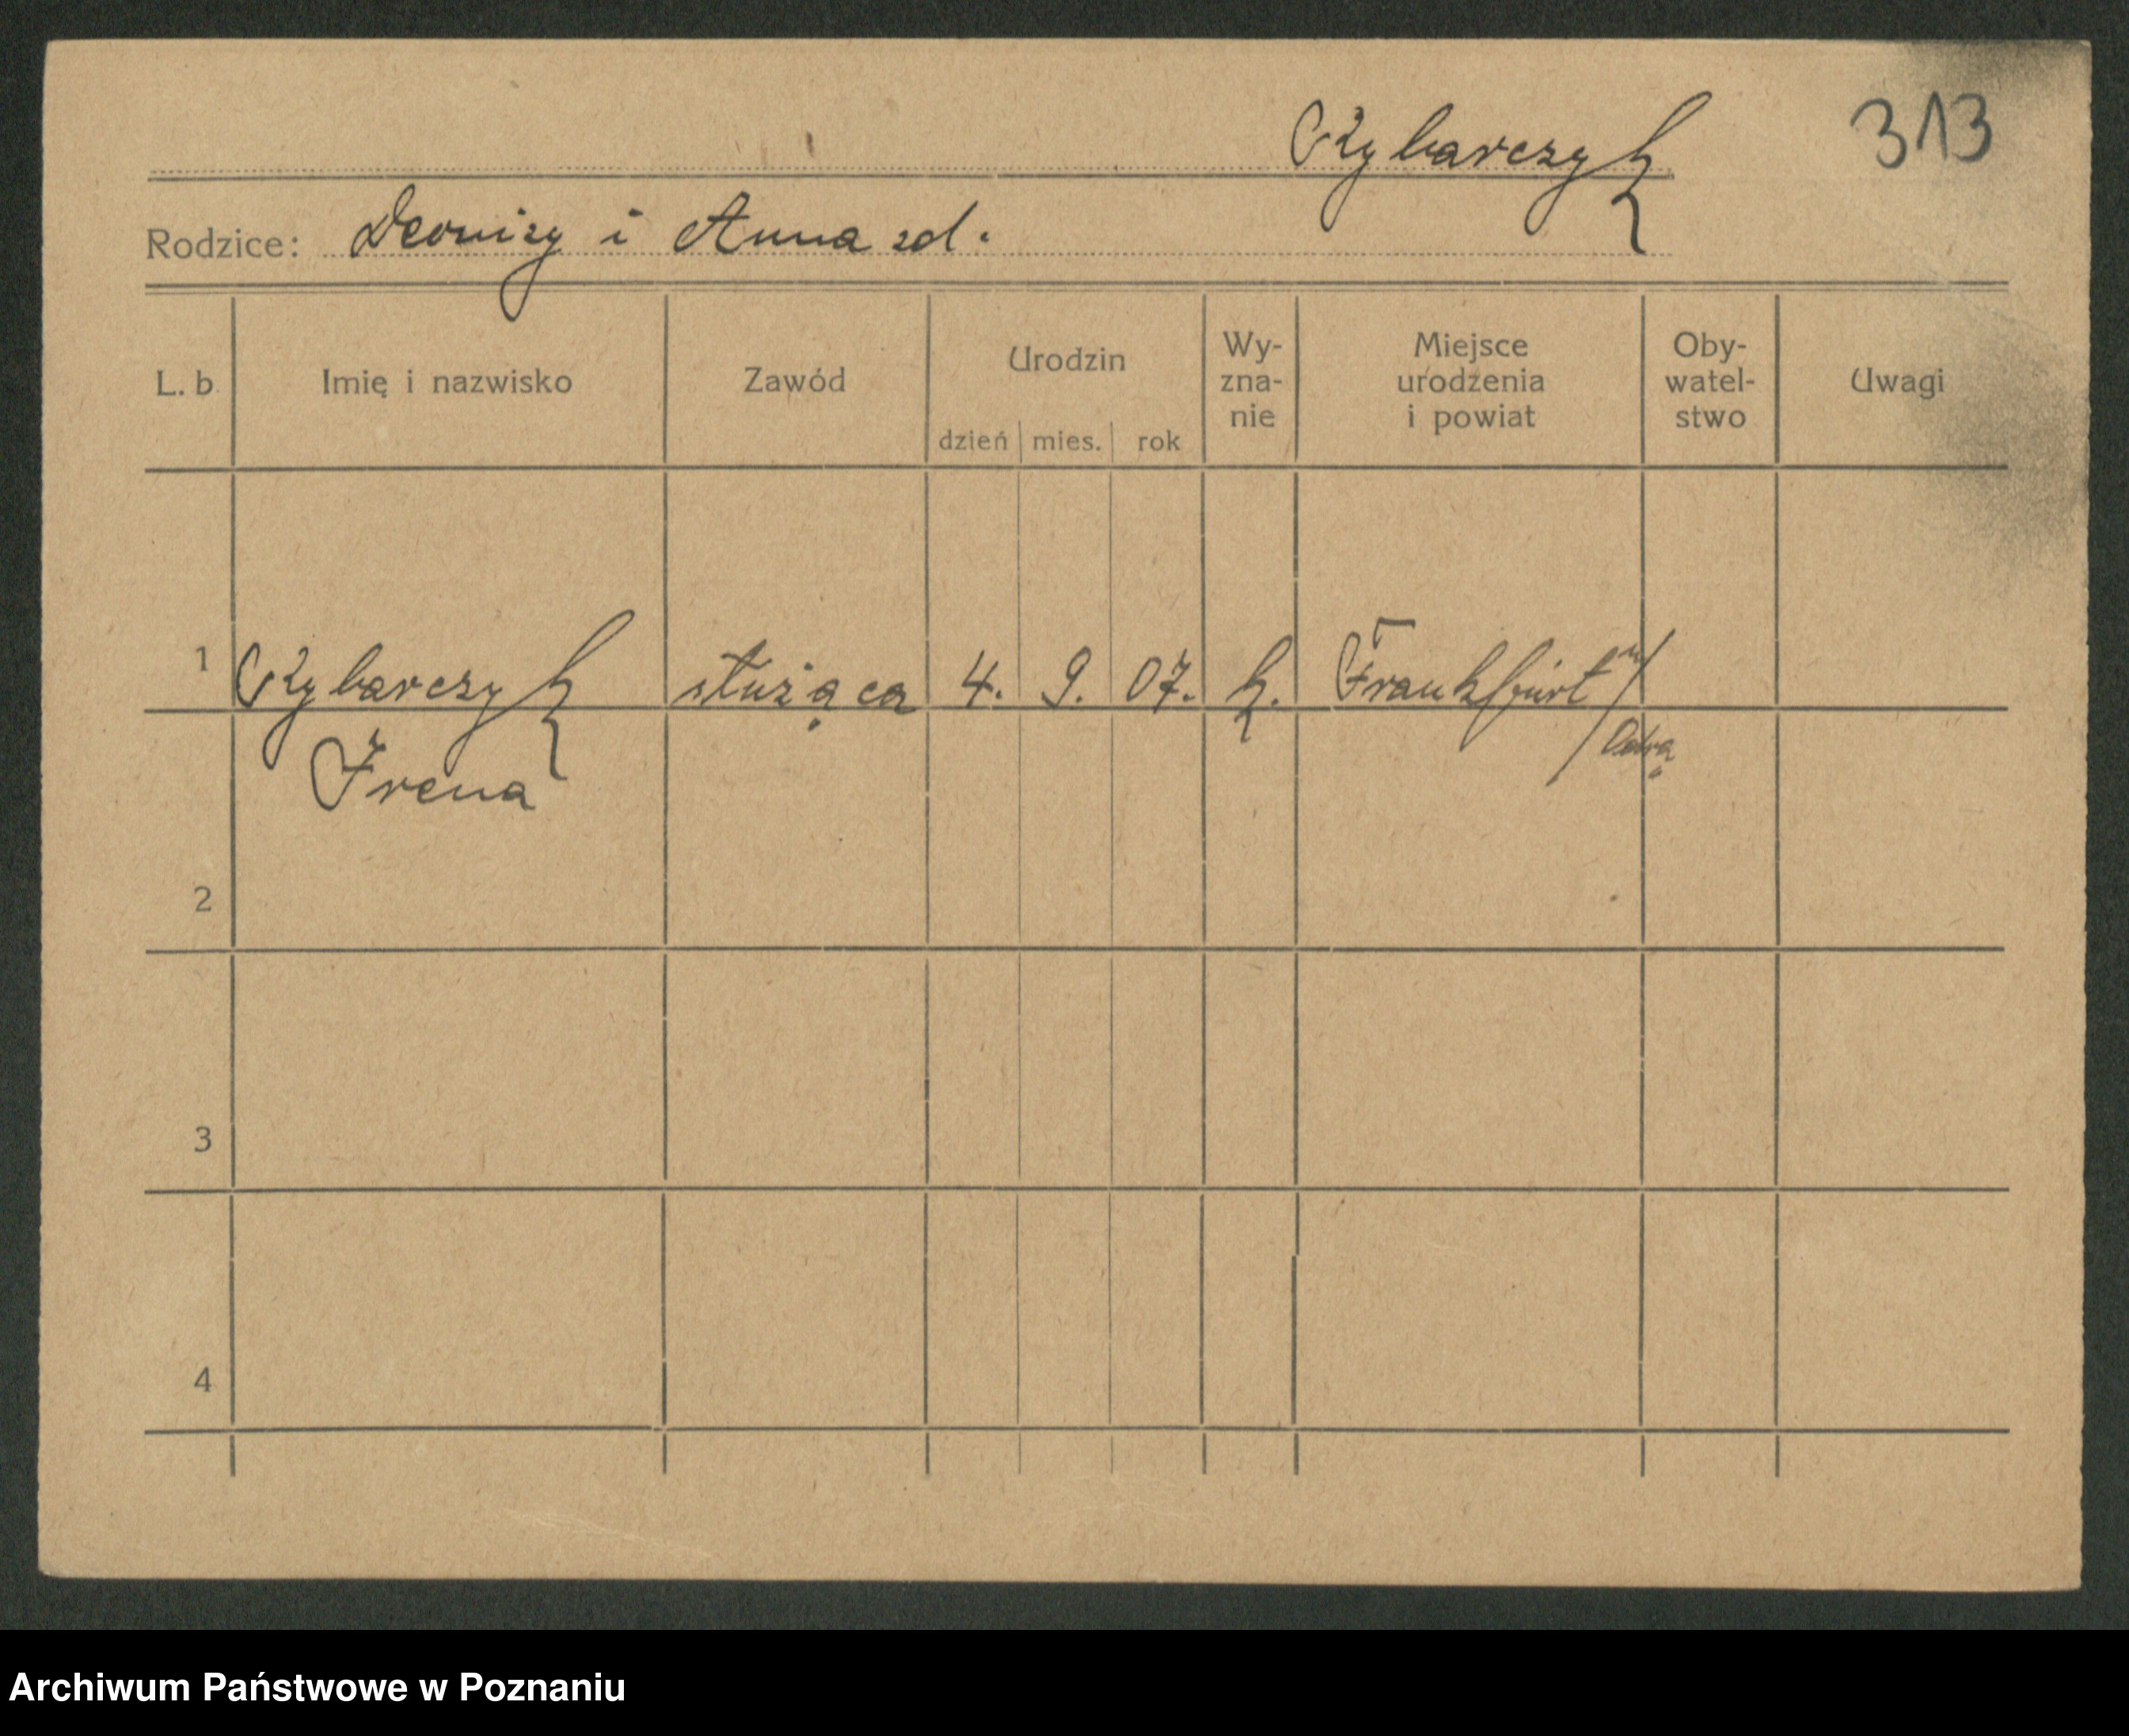 313
Rybarczyk
Rodzice: Deonizy i Anna zd.
L. b. Imię i nazwisko Zawód Urodzin dzień mies. rok Wy-zna-nie Miejsce urodzenia i powiat Oby-watel-stwo Uwagi
1 Rybarczyk służąca 4. 9. 07. k. Frankfurt n/
Irena Odrą
2
3
4
Archiwum Państwowe w Poznaniu